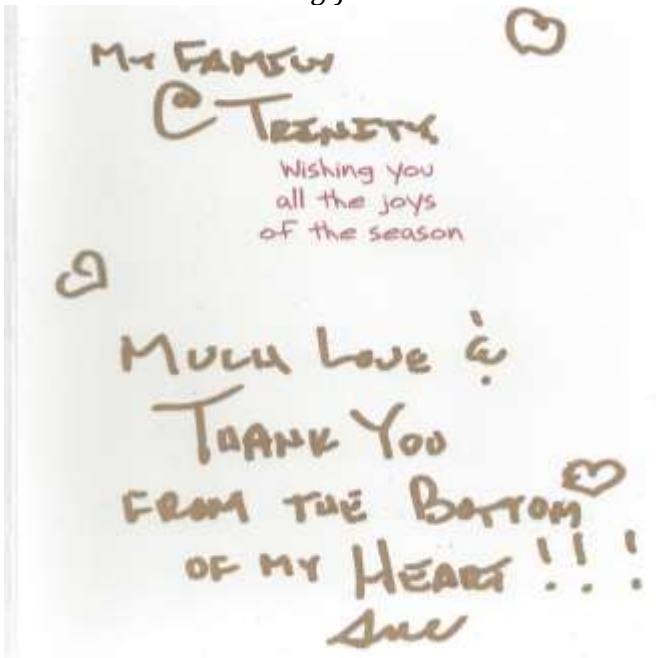 My FAMILY
@ TRINITY
Wishing you
all the joys
of the season
MUCH LOVE &
THANK YOU
FROM THE BOTTOM
OF MY HEART!!!
Sue